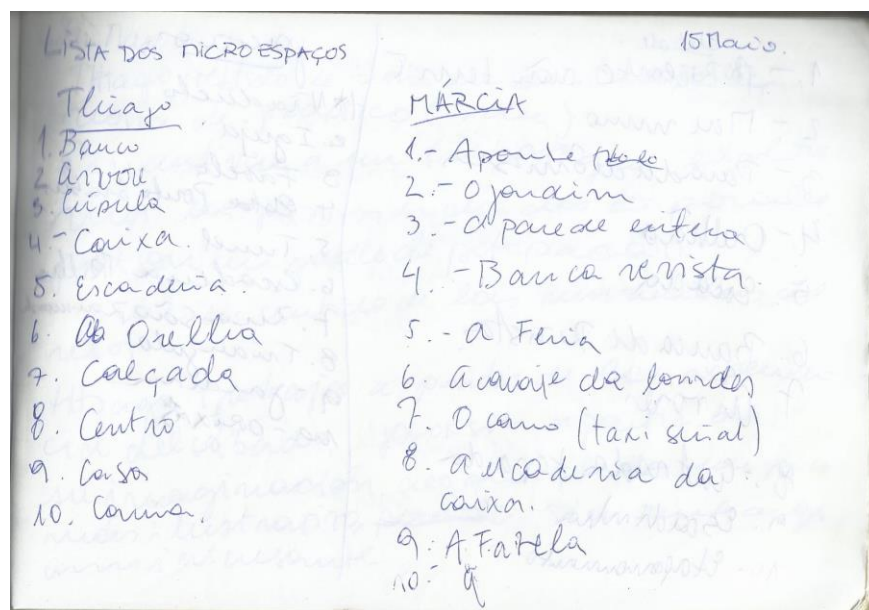 LISTA DOS MICROESPAÇOS
15 Maio.
Thiago
1. Banco
2 arvore
3. Cúpula
4.- Caixa.
5. Escaderia.
6. Orellia
7. Calçada
8. Centro
9. Casa
10. Cama.
MÁRCIA
1.- A ponte
2.- O jardim
3.- a parede entera
4.- Banca revista.
5.- a Feria
6. acaraje da lourdes
7. O carro (taxi siñal)
8.- a escaderia da
caixa.
9.- A Favela
10.- a